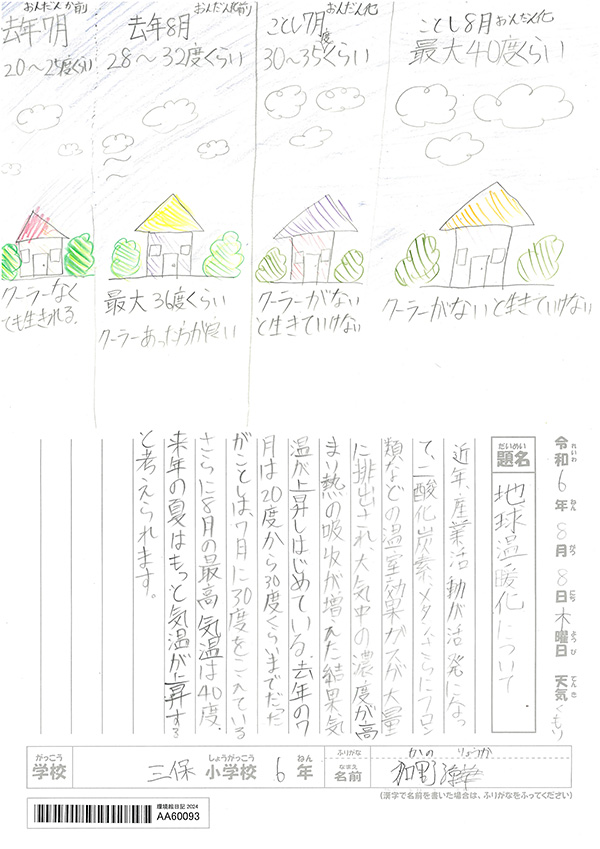 去年7月
おんだんか前
20〜25度くらい
クーラーなく
ても生きられる。
去年8月
おんだん化前
28〜32度くらい
最大36度くらい
クーラーあった方が良い
ことし7月
おんだん化
30〜35度くらい
クーラーがない
と生きていけない
ことし8月
おんだん化
最大40度くらい
クーラーがないと生きていけない
令和6年8月8日木曜日 天気くもり
れいわ ねん がつ にち ようび てんき
だいめい
題名
地球温暖化について
近年、産業活動が活発になっ
て、二酸化炭素、メタン、さらにフロン
類などの温室効果ガスが大量
に排出され、大気中の濃度が高
まり熱の吸収が増えた結果、気
温が上昇しはじめている。去年の7
月は20度から30度くらいまでだった
がことしは7月に30度をこえている
さらに8月の最高気温は40度。
来年の夏はもっと気温が上昇する
と考えられます。
がっこう しょうがっこう ねん
学校 三保 小学校 6年
ふりがな かの りょうか
なまえ
名前 加野
(漢字で名前を書いた場合は、ふりがなをふってください)
環境絵日記 2024
AA60093